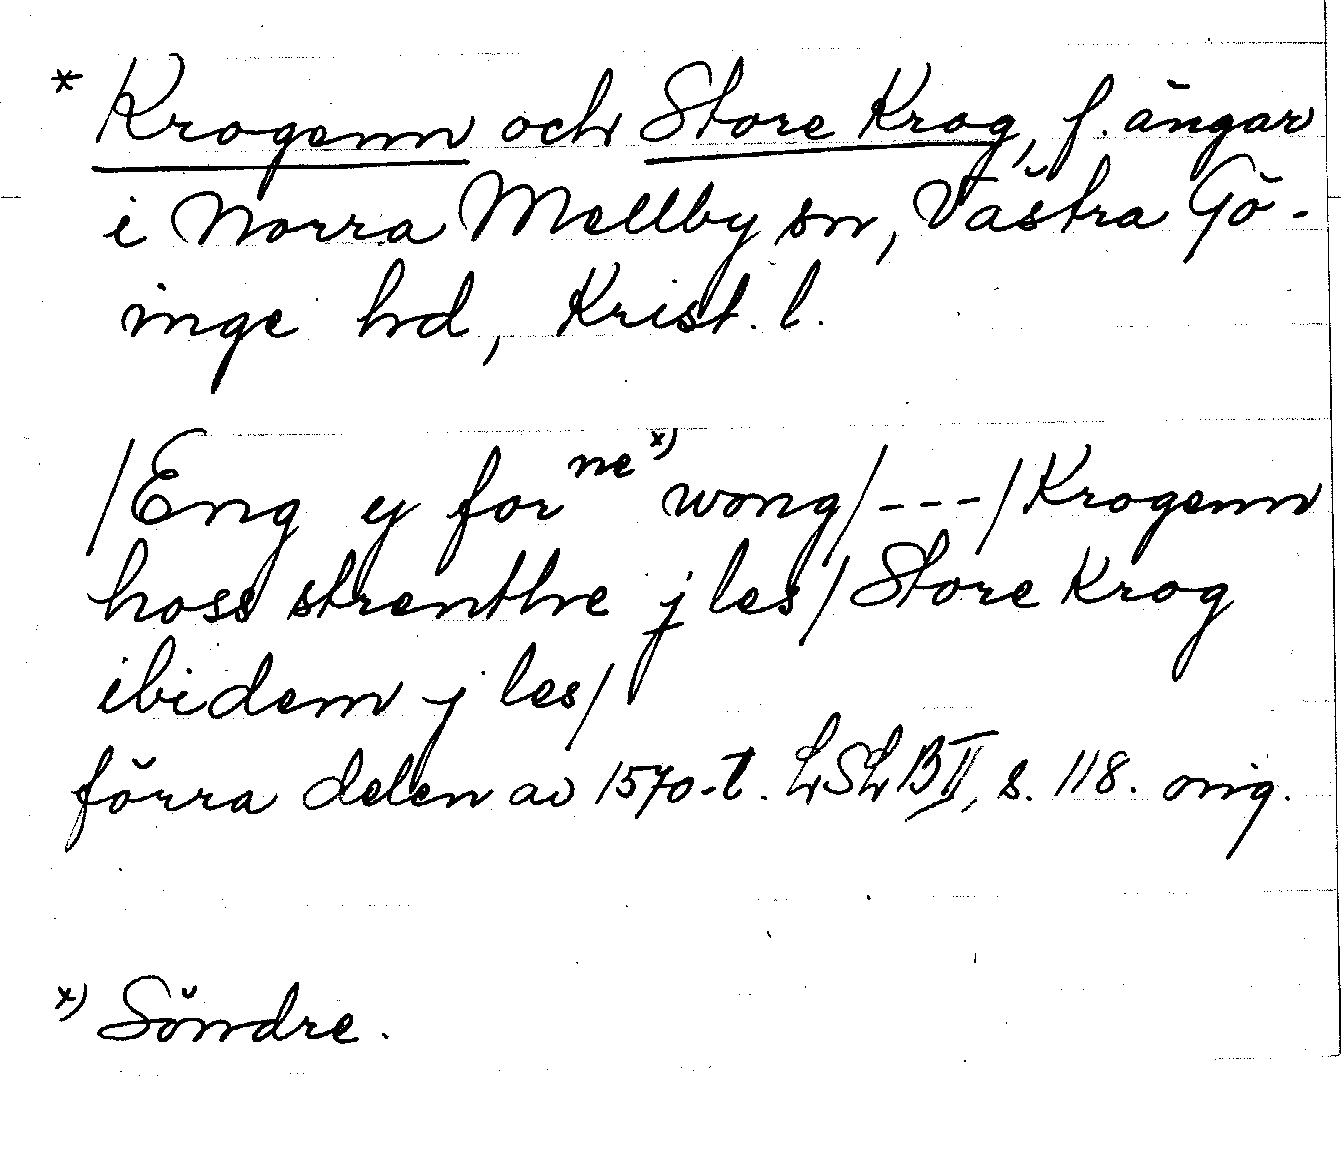 * Krogenn och Store Krog, f. ängar
i Norra Mellby sn, Västra Gö-
inge hd, Krist. l.
/Eng y for ne x) wong/---/Krogenn
hoss strenthe j les/Store Krog
ibidem j les/
förra delen av 1570-t. LSLB II, s. 118. orig.
x) Söndre.